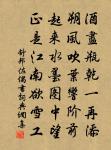 酒盡瓶乾一再添
朔風吹葉響階前
起來水墨圖中望
正是江南欲雪天
舒邦佐偶書詞典網集